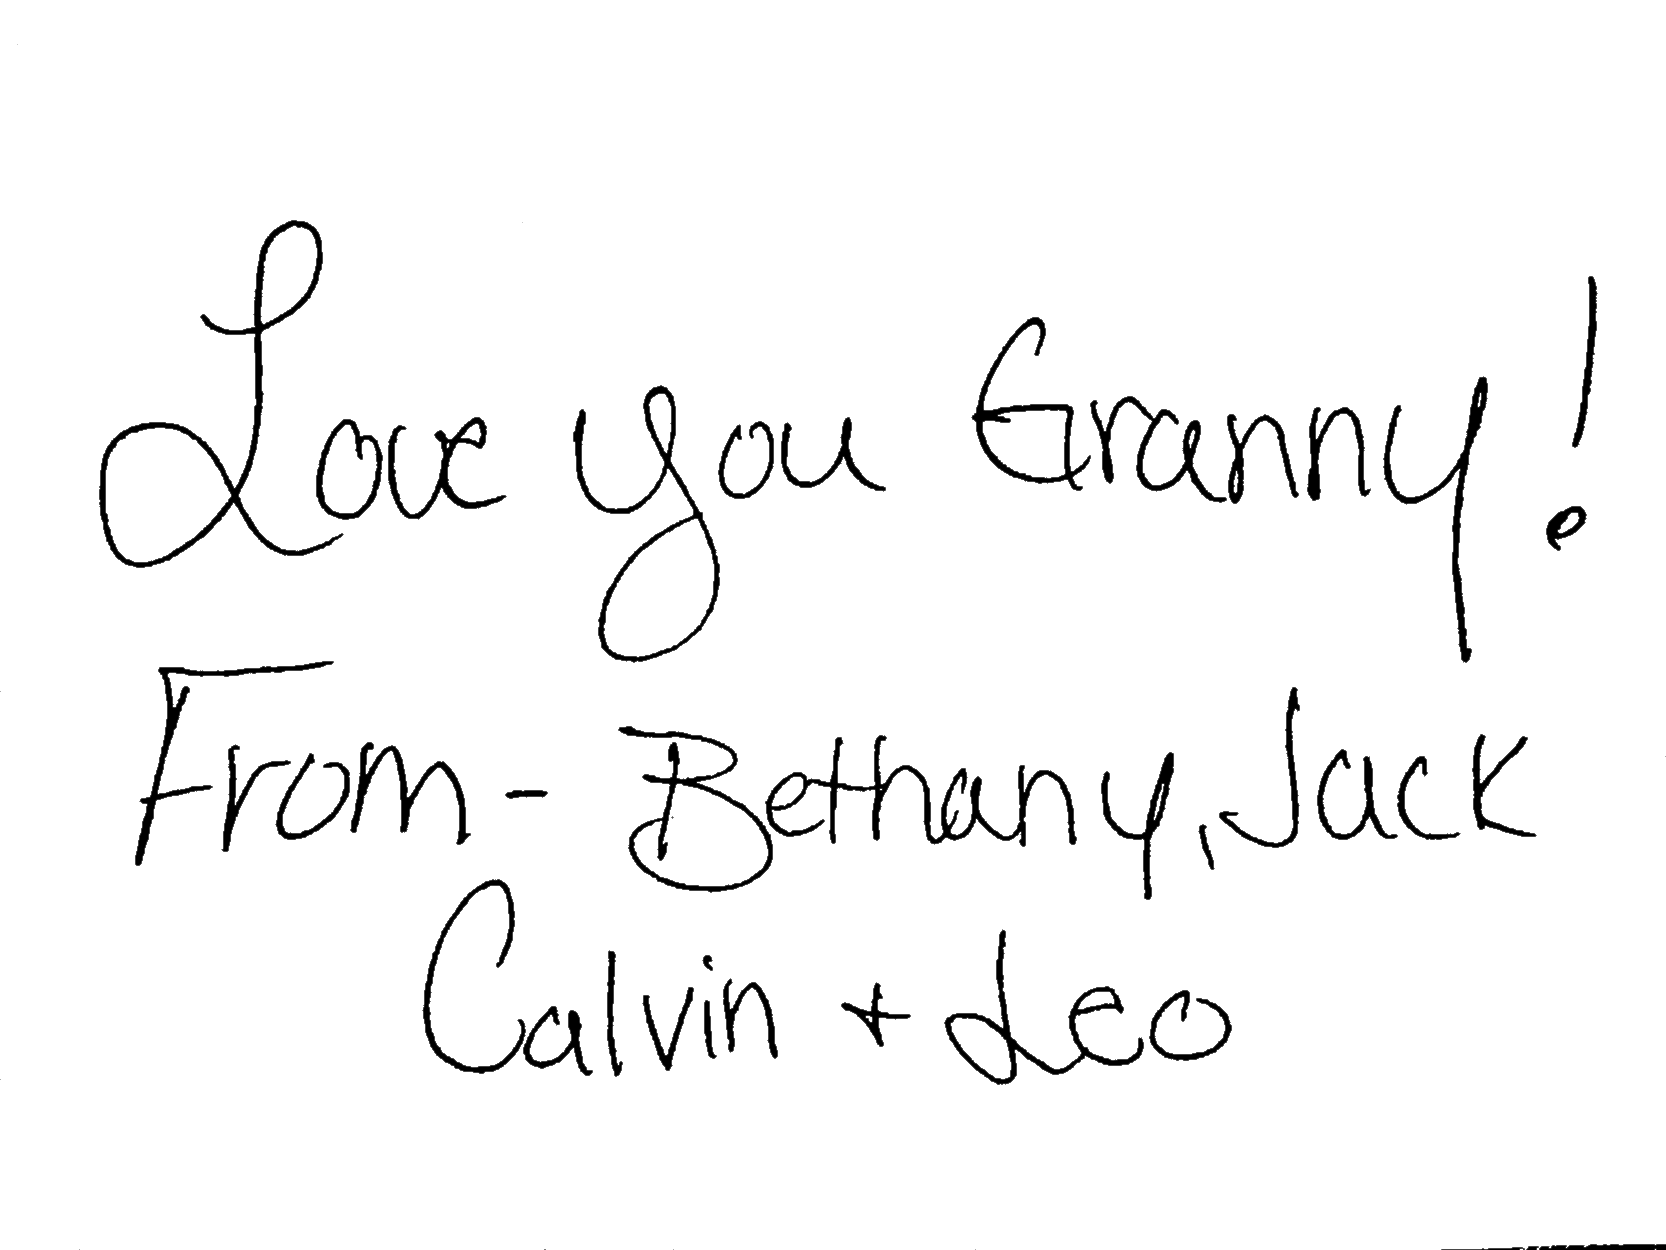 Love you Granny!
From - Bethany, Jack
Calvin + Leo